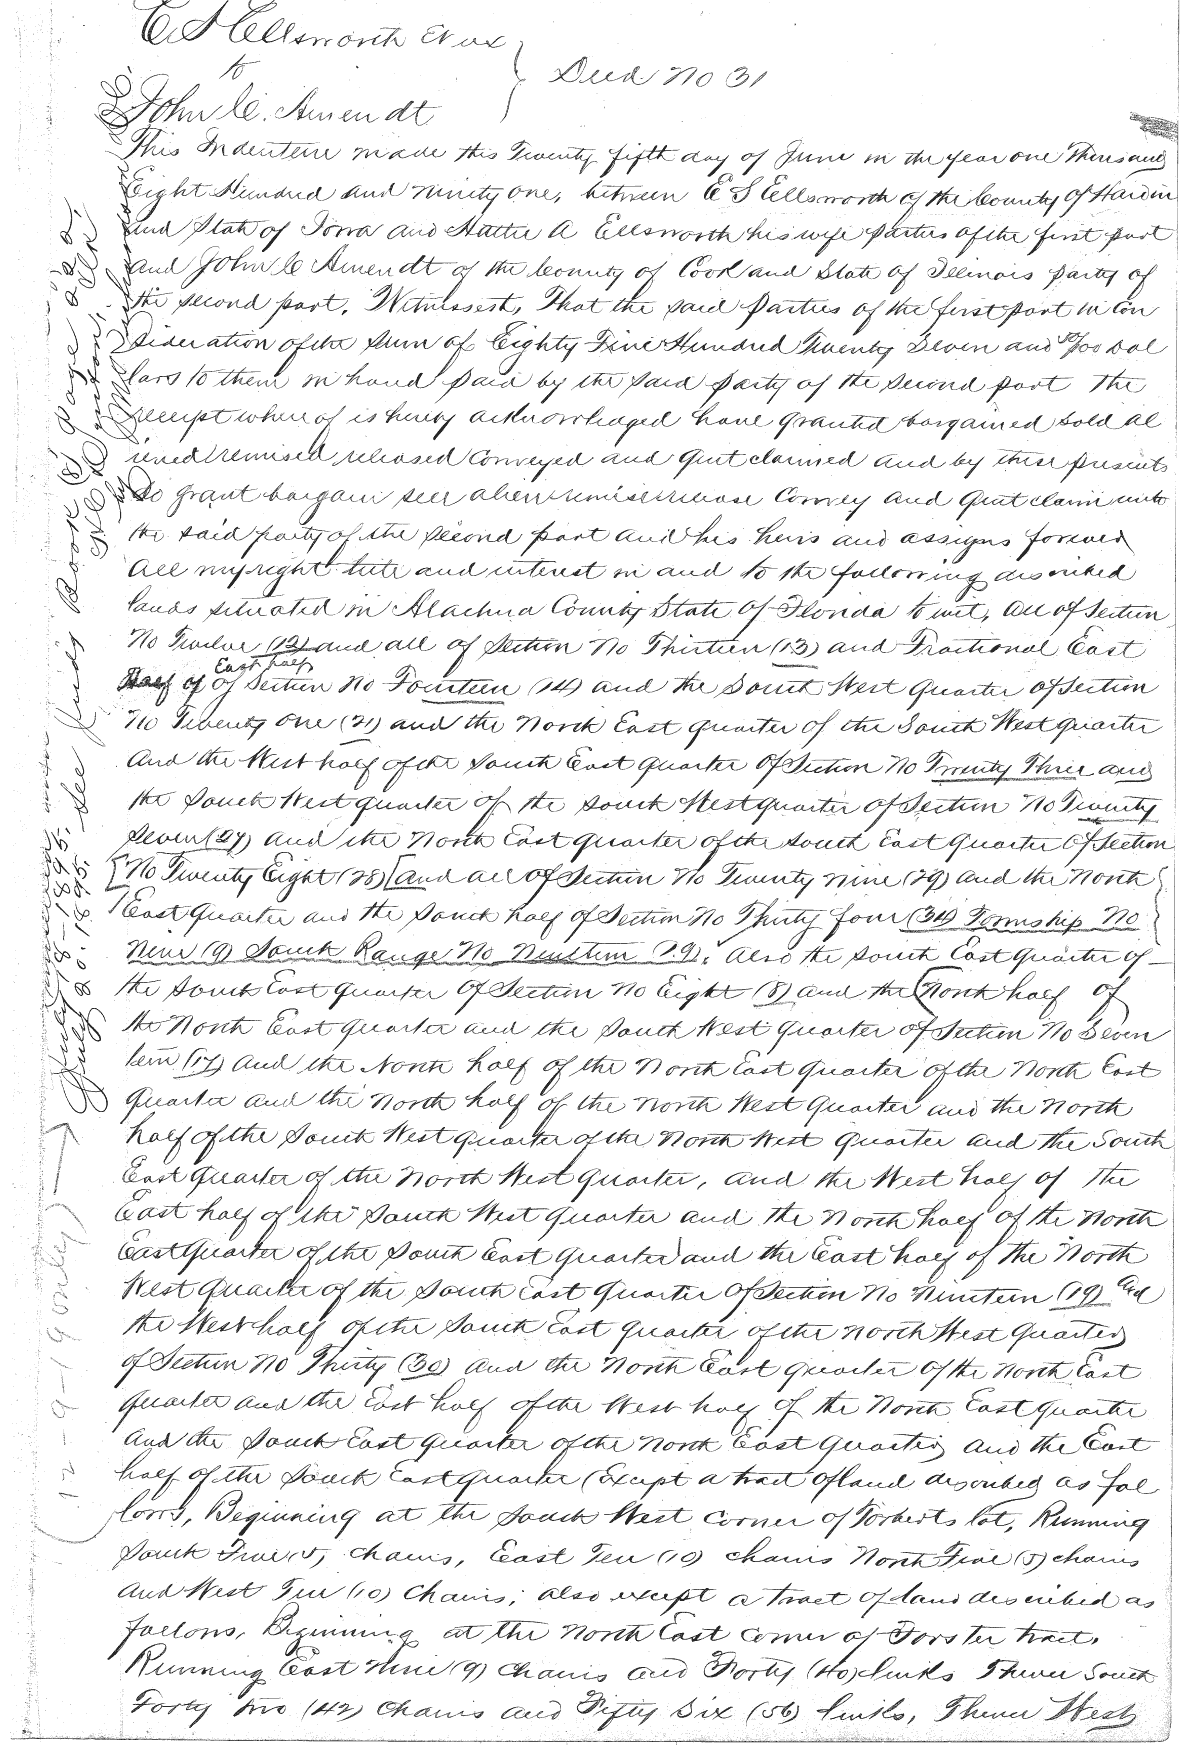 E. S. Ellsworth et ux
to
John C. Amendt
Deed No 31
This Indenture made this Twenty fifth day of June in the year one Thousand
Eight Hundred and ninety one, between E S Ellsworth of the County of Hardin
and State of Iowa and Hattie A Ellsworth his wife Parties of the first part
and John C Amendt of the County of Cook and State of Illinois party of
the second part, Witnesseth, That the said Parties of the first part in con
sideration of the sum of Eighty Five Hundred Twenty Seven and /100 Dol
lars to them in hand paid by the said party of the second part the
receipt where of is hereby acknowledged have granted bargained sold al
iened remised released conveyed and quit claimed and by these presents
do grant bargain sell alien remise release convey and quit claim unto
the said party of the second part and his heirs and assigns forever
All my right title and interest in and to the following described
lands situated in Alachua County State of Florida to wit, all of Section
No Twelve (12) and all of Section No Thirteen (13) and Fractional East
East half
Half of of Section No Fourteen (14) and the South West Quarter of Section
No Twenty one (21) and the North East quarter of the South West quarter
And the West half of the South East quarter of Section No Twenty Three and
the South West quarter of the South West quarter of Section No Twenty
Seven (27) and the North East quarter of the South East quarter of Section
[No Twenty Eight (28)[and all of Section No Twenty nine (29) and the North
East Quarter and the South half of Section No Thirty four (34) Township No
Nine (9) South Range No Nineteen (19). Also the South East Quarter of
the South East quarter of Section No Eight (8) and the (North half of
the North East quarter and the South West quarter of Section No Seven
teen (17) and the North half of the North East quarter of the North East
Quarter and the North half of the North West Quarter and the North
half of the South West quarter of the North West quarter and the South
East quarter of the North West Quarter, and the West half of the
East half of the South West quarter and the North half of the North
East Quarter of the South East Quarter) and the East half of the North
West Quarter of the South East Quarter of Section No Nineteen (19) and
the West half of the South East quarter of the North West Quarter
of Section No Thirty (30) and the North East quarter of the North East
quarter and the East half of the West half of the North East quarter
and the South East Quarter of the North East Quarter and the East
half of the South East quarter (Except a tract of land described as fol
lows, Beginning at the South West corner of Torberts lot, Running
South Five (5) chains, East Ten (10) chains North Five (5) chains
and West Ten (10) Chains; also except a tract of land described as
follows, Beginning at the North East corner of Forster tract,
Running East Nine (9) chains and Forty (40) links Thence South
Forty two (42) chains and Fifty Six (56) links, Thence West